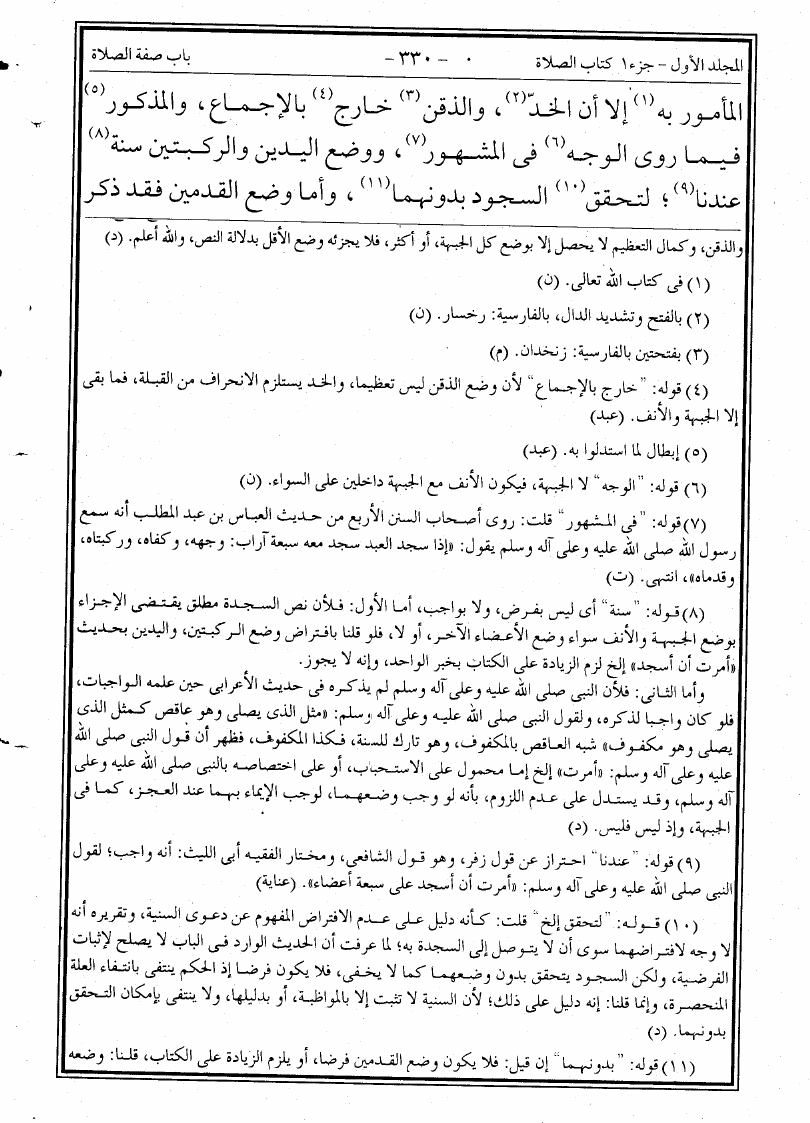 المجلد الأول - جزء١ كتاب الصلاة - ٣٣٠ - باب صفة الصلاة
المأمور به(١) إلا أن الخدّ(٢)، والذقن(٣) خارج(٤) بالإجماع، والمذكور(٥)
فيما روى الوجه(٦) فى المشهور(٧)، ووضع اليدين والركبتين سنة(٨)
عندنا(٩)؛ لتحقق(١٠) السجود بدونهما(١١)، وأما وضع القدمين فقد ذكر
والذقن، وكمال التعظيم لا يحصل إلا بوضع كل الجبهة، أو أكثر، فلا يجزئه وضع الأقل بدلالة النص، والله أعلم. (د)
(١) فى كتاب الله تعالى. (ن)
(٢) بالفتح وتشديد الدال، بالفارسية: رخسار. (ن)
(٣) بفتحتين بالفارسية: زنخدان. (م)
(٤) قوله: "خارج بالإجماع" لأن وضع الذقن ليس تعظيما، والخد يستلزم الانحراف من القبلة، فما بقى
إلا الجبهة والأنف. (عبد)
(٥) إبطال لما استدلوا به. (عبد)
(٦) قوله: "الوجه" لا الجبهة، فيكون الأنف مع الجبهة داخلين على السواء. (ن)
(٧) قوله: "فى المشهور" قلت: روى أصحاب السنن الأربع من حديث العباس بن عبد المطلب أنه سمع
رسول الله صلى الله عليه وعلى آله وسلم يقول: «إذا سجد العبد سجد معه سبعة آراب: وجهه، وكفاه، وركبتاه،
وقدماه»، انتهى. (ت)
(٨) قوله: "سنة" أى ليس بفرض، ولا بواجب، أما الأول: فلأن نص السجدة مطلق يقتضى الإجزاء
بوضع الجبهة والأنف سواء وضع الأعضاء الآخر، أو لا، فلو قلنا بافتراض وضع الركبتين، واليدين بحديث
«أمرت أن أسجد» إلخ لزم الزيادة على الكتاب بخبر الواحد، وإنه لا يجوز.
وأما الثانى: فلأن النبى صلى الله عليه وعلى آله وسلم لم يذكره فى حديث الأعرابى حين علمه الواجبات،
فلو كان واجبا لذكره، ولقول النبى صلى الله عليه وعلى آله وسلم: «مثل الذى يصلى وهو عاقص كمثل الذى
يصلى وهو مكفوف» شبه العاقص بالمكفوف، وهو تارك للسنة، فكذا المكفوف، فظهر أن قول النبى صلى الله
عليه وعلى آله وسلم: «أمرت» إلخ إما محمول على الاستحباب، أو على اختصاصه بالنبى صلى الله عليه وعلى
آله وسلم، وقد يستدل على عدم اللزوم، بأنه لو وجب وضعهما، لوجب الإيماء بهما عند العجز، كما فى
الجبهة، وإذ ليس فليس. (د)
(٩) قوله: "عندنا" احتراز عن قول زفر، وهو قول الشافعى، ومختار الفقيه أبى الليث: أنه واجب؛ لقول
النبى صلى الله عليه وعلى آله وسلم: «أمرت أن أسجد على سبعة أعضاء». (عناية)
(١٠) قوله: "لتحقق إلخ" قلت: كأنه دليل على عدم الافتراض المفهوم عن دعوى السنية، وتقريره أنه
لا وجه لافتراضهما سوى أن لا يتوصل إلى السجدة به؛ لما عرفت أن الحديث الوارد فى الباب لا يصلح لإثبات
الفرضية، ولكن السجود يتحقق بدون وضعهما كما لا يخفى، فلا يكون فرضا إذ الحكم ينتفى بانتفاء العلة
المنحصرة، وإنما قلنا: إنه دليل على ذلك؛ لأن السنية لا تثبت إلا بالمواظبة، أو بدليلها، ولا ينتفى بإمكان التحقق
بدونهما. (د)
(١١) قوله: "بدونهما" إن قيل: فلا يكون وضع القدمين فرضا، أو يلزم الزيادة على الكتاب، قلنا: وضعه